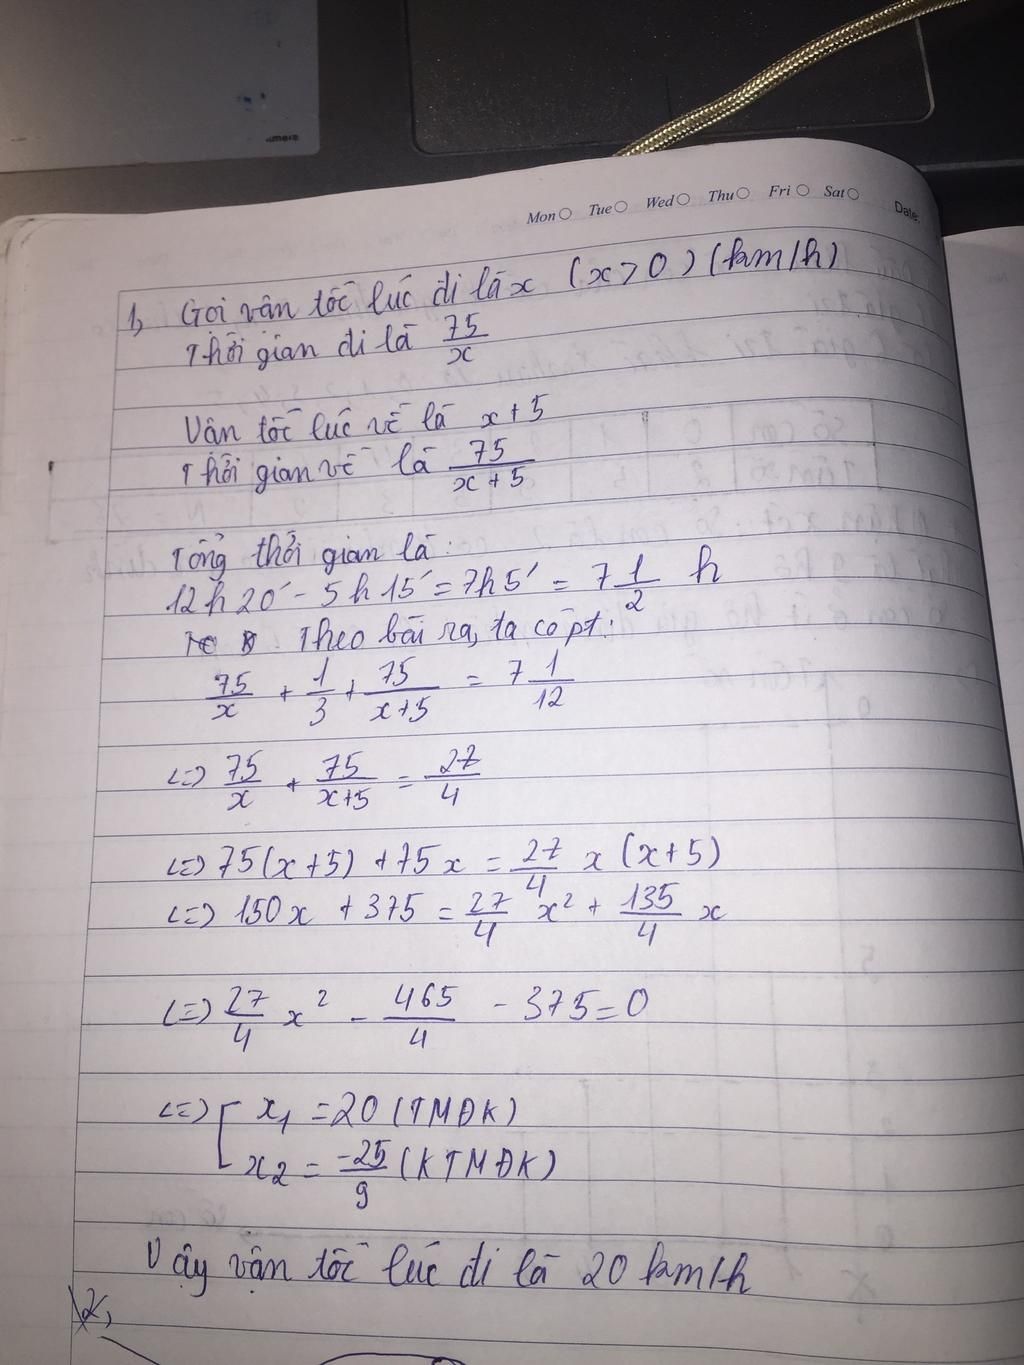 Mon Tue Wed Thu Fri Sat Date:
1, Gọi vận tốc lúc đi là x (x>0) (km/h)
Thời gian đi là 75/x
Vận tốc lúc về là x+5
Thời gian về là 75/(x+5)
Tổng thời gian là:
12h20' - 5h15' = 7h5' = 7 1/2 h
Theo bài ra, ta có pt:
75/x + 1/3 + 75/(x+5) = 7 1/12
<=> 75/x + 75/(x+5) = 27/4
<=> 75(x+5) + 75x = 27/4 x (x+5)
<=> 150x + 375 = 27/4 x² + 135/4 x
<=> 27/4 x² - 465/4 - 375 = 0
<=> [ x₁ = 20 (TMĐK)
x₂ = -25/9 (KTMĐK)
Vậy vận tốc lúc đi là 20 km/h
2,